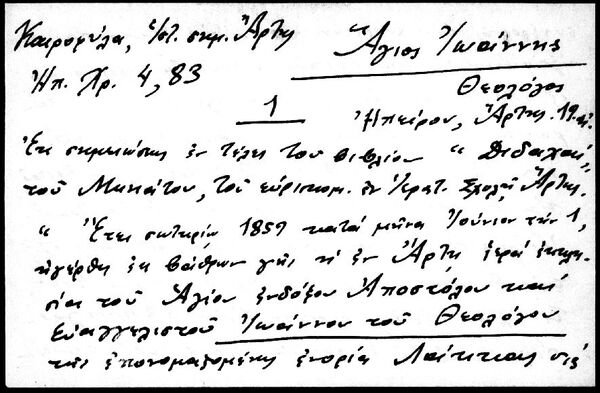 Καιροφύλα, Ἱστ. σημ. Ἄρτης
Ἅγιος Ἰωάννης
Ἠπ. Χρ. 4, 83
Θεολόγος
1
Ἠπείρου, Ἄρτης. 19
Ἐκ σημειώσεως ἐν τέλει τοῦ βιβλίου "Διδαχαί,
τοῦ Μηνιάτου, τοῦ εὑρισκομ. ἐν Ἱερατ. Σχολῇ Ἄρτης.
"Ἔτει σωτηρίῳ 1859 κατά μῆνα Ἰούνιον τήν 1,
ἠγέρθη ἐκ βάθρων γῆς ἡ ἐν Ἄρτῃ ἱερά ἐκκλη-
σία τοῦ Ἁγίου ἐνδόξου Ἀποστόλου καί
Εὐαγγελιστοῦ Ἰωάννου τοῦ Θεολόγου
τῆς ἐπονομαζομένης ἐνορία